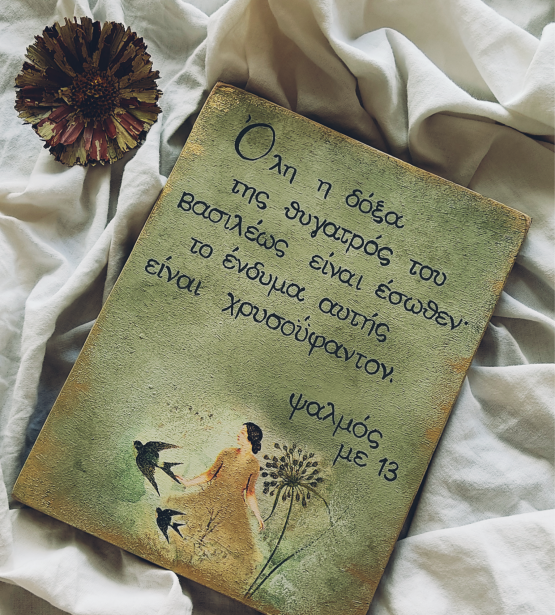 Όλη η δόξα
της θυγατρός του
βασιλέως είναι έσωθεν·
το ένδυμα αυτής
είναι χρυσοΰφαντον.
ψαλμός
με 13